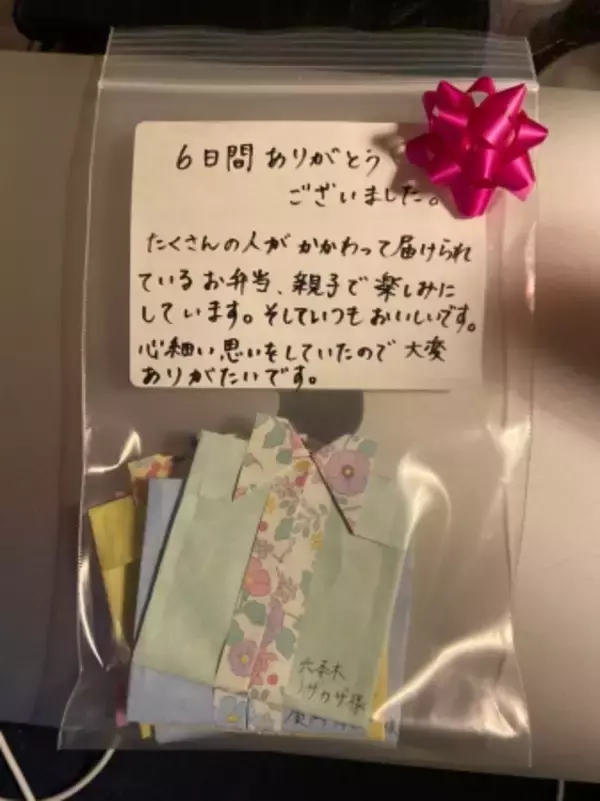 6日間ありがとう
ございました。
たくさんの人がかかわって届けられ
ているお弁当、親子で楽しみに
しています。そしていつもおいしいです。
心細い思いをしていたので大変
ありがたいです。
六条木
様
様